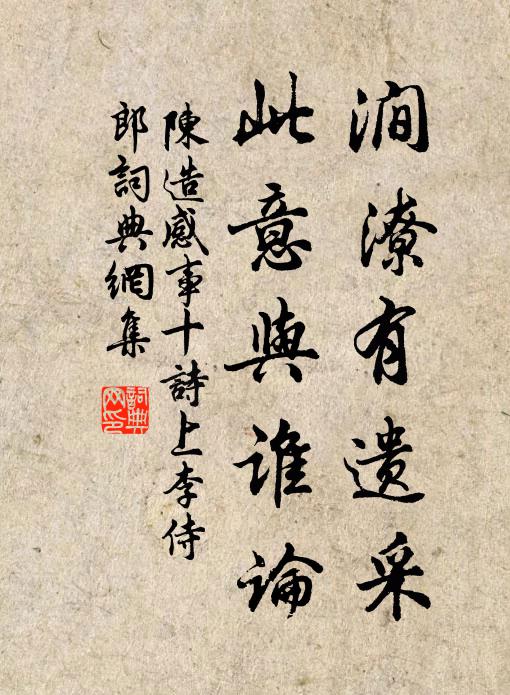 澗潦有遺采
此意與誰論
陳造感事十詩上李侍
郎詞典網集
詞典網印